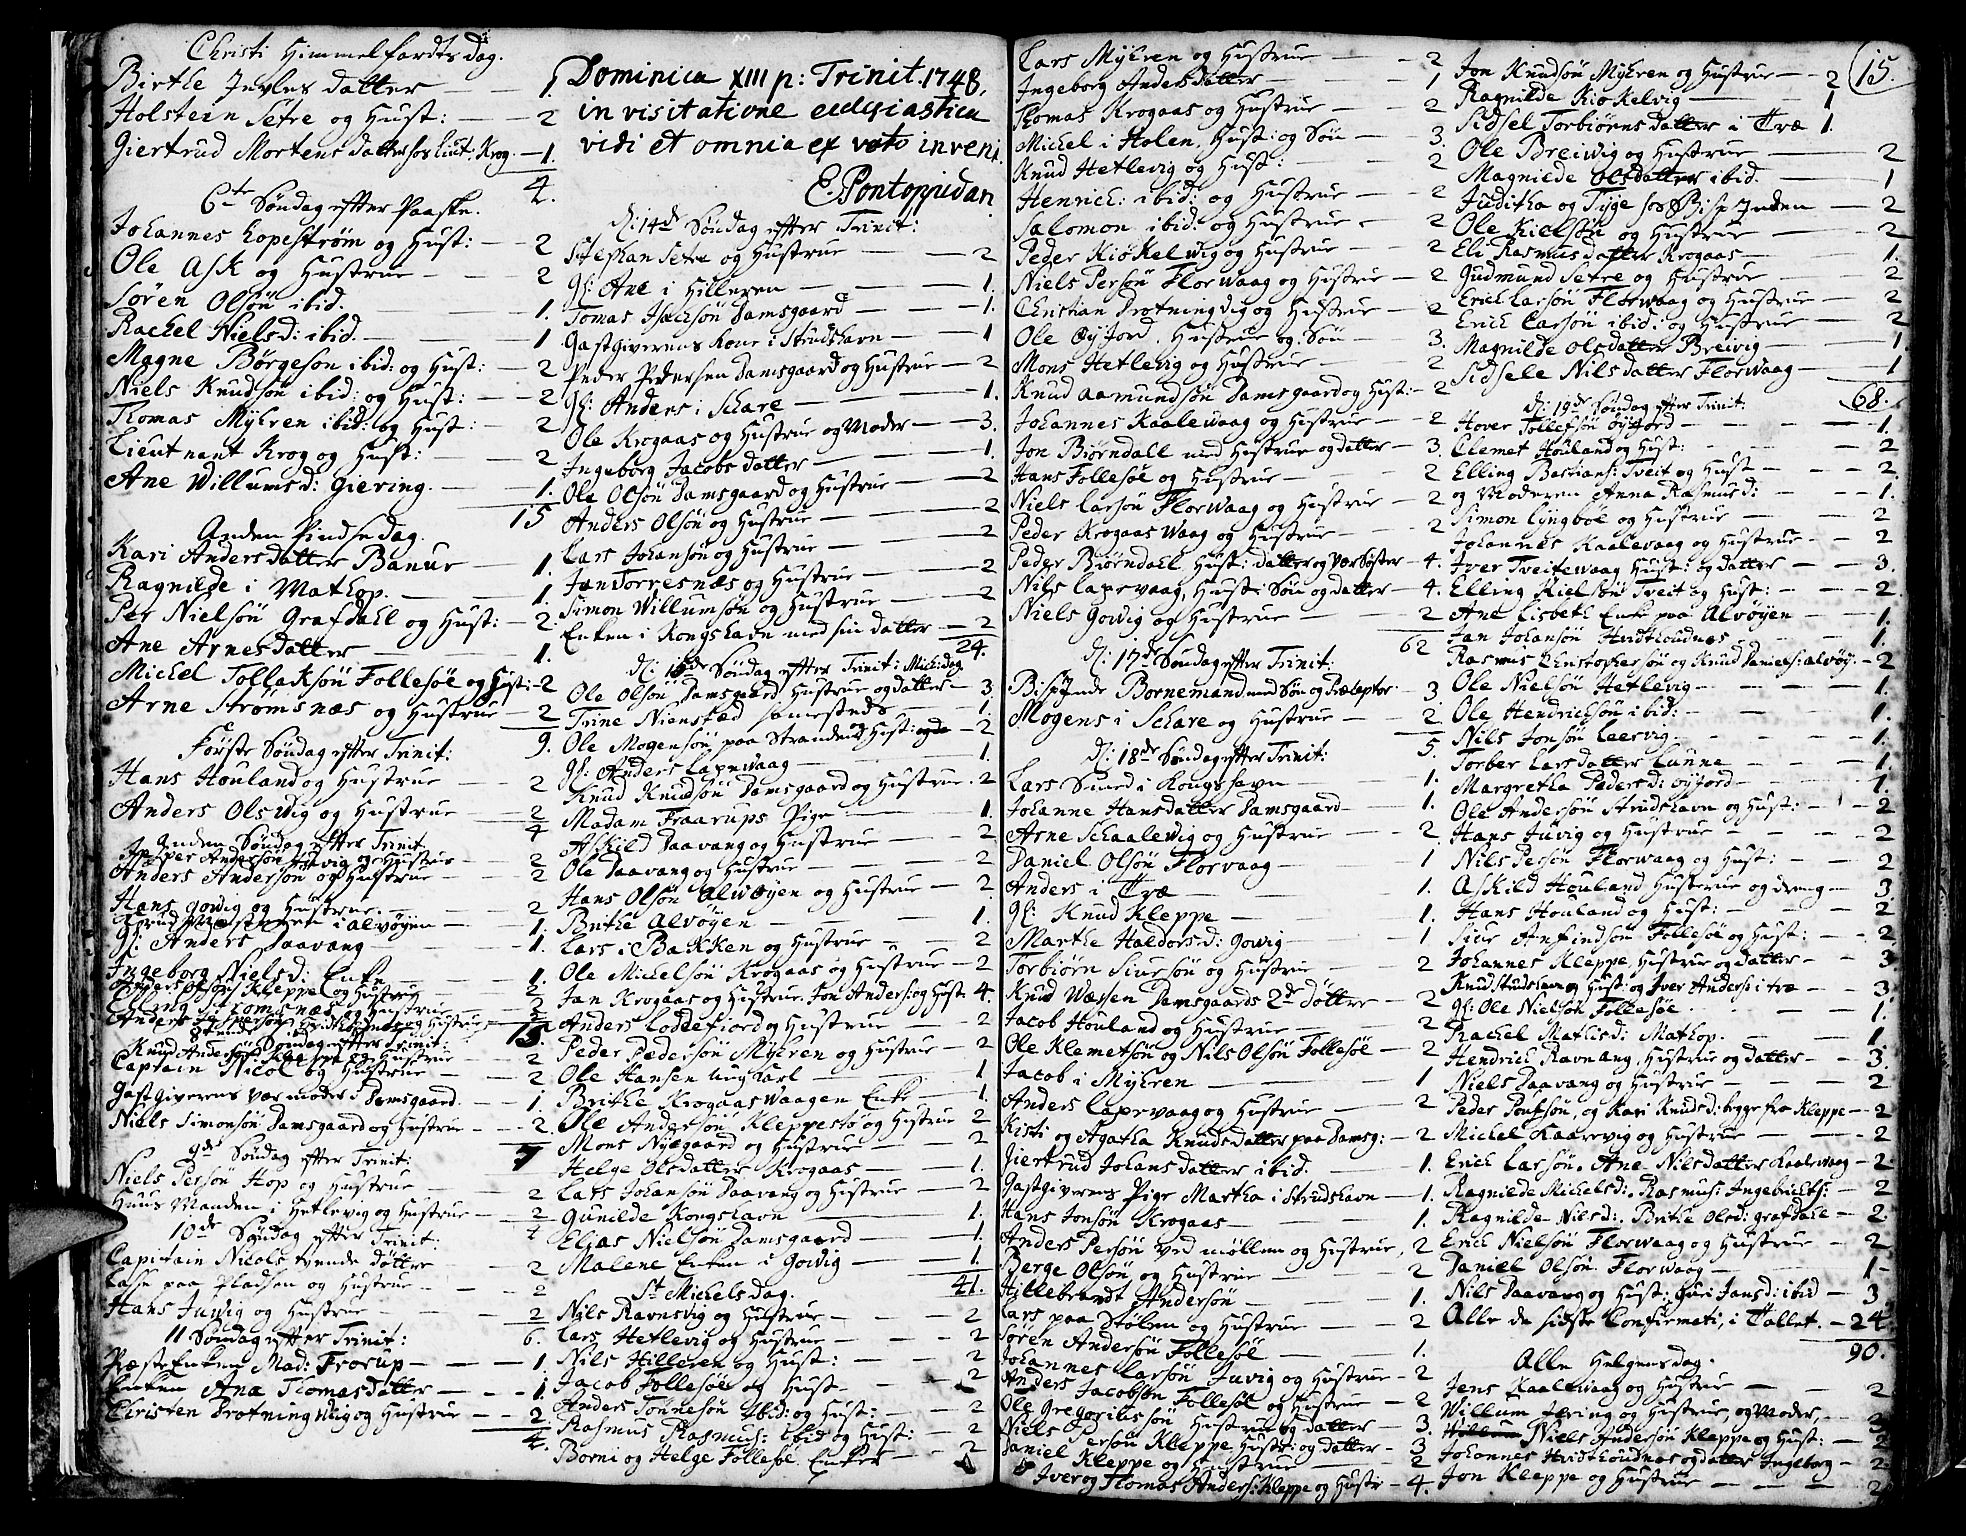 Christi Himmelfardts dag.
Birthe Jverles datter — 1.
Holstein Setre og Hust: — 2
Giertrud Mortens datter hos Lieut: Krog — 1.
4.
6te Søndag efter Paaske.
Johannes Lopestrøm og Hust: — 2
Ole Ask og Hustrue — 2
Søren Olsøn ibid. — 1.
Rachel Nielsd: ibid. — 1
Magne Børgeson ibid: og Hust: — 2
Niels Knudsøn ibid: og Hust: — 2
Thomas Myhren ibid: og Hust: — 2
Lieutnant Krog og Hust: — 2
Ane Willumsd: Giering. — 1.
15
Anden Pindse dag.
Kari Andersdatter Banur — 1.
Ragnilde i Mathop. — 1.
Per Nielsøn Grafdahl og Hust: — 2.
Ane Arnesdatter — 1.
Michel Tollaksøn Follesøe og Hust: — 2
Arne Strømsnæs og Hustrue — 2
9.
Første Søndag efter Trinit:
Hans Houland og Hustrue — 2
Anders Olswig og Hustrue — 2
4
Anden Søndag efter Trinit
Jesper Andersøn Juvig og Hustrue — 2
Anders Andersøn og Hustrue — 2
Hans Gowig og Hustrue. — 2
i Alvøyen — 1.
gl: Anders Daavang — 1.
Ingeborg Nielsd: Enke — 1.
Anders Olsøn Kleppe og Hustrue — 2
Elling Stomsnæs og Hustrue — 2
15.
Søndag efter Trinit:
Knud Andersøn Kleppe og Hustrue — 2
Captain Nicol og Hustrue — 2
Gastgiverens værmoder i Damsgaard. — 1.
Niels Simonsøn Damsgaard og Hustrue — 2
7
9de Søndag efter Trinit:
Niels Persøn Hop og Hustrue — 2
Huusmanden i Hetlevig og Hustrue — 2
4
10de Søndag efter Trinit:
Capitain Nicols tvende døttre — 2
Lasse paa Pladsen og Hustrue — 2
Hans Juwig og Hustrue — 2
6.
11 Søndag efter Trinit:
Præste Enken Mad: Frorup — 1.
Enken Ane Thomasdatter — 1.
Christen Drotningwig og Hustrue — 2
4.
Dominica XIII p: Trinit. 1748,
in visitatione ecclesiastica
vidi et omnia ex voto inveni.
E. Pontoppidan
D: 14de Søndag efter Trinit:
Stephan Setre og Hustrue — 2
gl: Ane i Hilleren — 1.
Tomas Isachsøn Damsgaard — 1.
Gastgiverens Kone i Strudshavn — 1
Peder Pedersen Damsgaard og Hustrue — 2
gl: Anders i Schare — 1.
Ole Krogaas og Hustrue og Moder — 3.
Ingeborg Jacobs datter — 1.
Ole Olsøn Damsgaard og Hustrue — 2
Anders Olsøn og Hustrue — 2
Lars Johansøn og Hustrue — 2
Jan Torresnæs og Hustrue — 2
Simon Willumsøn og Hustrue — 2
Enken i Kongshavn med sin datter — 2
24.
D: 16de Søndag efter Trinit: Michi dag
Ole Olsøn Damsgaard Hustrue og datter — 3.
Trine Nienstæd sammesteds — 1.
Ole Mogensøn paa Stranden Hust: — 2
gl: Anders Lapewaag — 1.
Knud Knudsøn Damsgaard og Hustrue. — 2
Madam Fraarups Pige — 1.
Askild Daavang og Hustrue — 2
Ole Daavang og Hustrue — 2
Hans Olsøn Alwøyen og Hustrue — 2
Brithe Alvøyen — 1.
Lars i Bakken og Hustrue — 2
Ole Michelsøn Krogaas og Hustrue — 2
Jan Krogaas og Hustrue. Jon Anders: og Hust — 4.
Anders Loddefiord og Hustrue — 2
Peder Pedersøn Myhren og Hustrue — 2
Ole Hansen ungkarl — 1
Brithe Krogaas Waagen Enke — 1.
Ole Andersøn Kleppestø og Hustrue 2
Mons Nyegaard og Hustrue — 2
Helge Olsdatter Krogaas — 1.
Lars Johansøn Daavang og Hustrue — 2
Gunilde Kongshavn — 1.
Elias Nielsøn Damsgaard — 1.
Malene Enken i Gowig — 1.
41.
St Michels dag.
Nils Ravnsvig og Hustrue — 2
Lars Hetlevig og Hustrue — 2
Nils Hilleren og Hust: — 2
Jacob Follesøe og Hust — 2
Anders Tonnesøn ibid: og Hust: — 2
Rasmus Rasmus: ibid og Hust: — 2
Borni og Helge Follesøe. Enker — 2
Lars Myhren og Hustrue — 2
Ingeborg Andersdatter — 1
Thomas Krogaas og Hustrue — 2
Michel i Holen, Hust: og Søn — 3.
Knud Hetlevig og Hust: — 2
Henrich: ibid: og Hustrue — 2
Salomon ibid: og Hustrue — 2
Peder Kiøkelwig og Hustrue — 2
Niels Persøn Florwaag og Hustrue — 2
Christian Drotningvig og Hustrue — 2
Ole Øyjord, Hustrue og Søn — 3.
Mons Hetlevig og Hustrue — 2
Knud Aamundsøn Damsgaard og Hust: — 2
Johannes Kaalewaag og Hustrue — 2
Jon Biørndall med Hustrue og datter — 3.
Hans Follesøe og Hustrue — 2
Niels Larsøn Florwaag og Hustrue — 2
Peder Krogaas Waag og Hustrue — 2
Peder Biørndahl Hust: datter og Værsøster — 4.
Nils Lapevaag, Hust: Søn og datter — 4.
Niels Gowig og Hustrue — 2
62
D: 17de Søndag efter Trinit:
Bisp Jnde Bornemand med Søn og Præceptor — 3
Mogens i Schare og Hustrue — 2
5.
D: 18de Søndag efter Trinit:
Lars Smed i Kongshavn — 1.
Johanne Hansdatter Damsgaard — 1.
Arne Schaalewig og Hustrue — 2
Daniel Olsøn Florvaag — 1
Anders i Træ — 1.
gl: Knud Kleppe — 1.
Marthe Haldorsd: Gowig — 1
Torbiørn Siursøn og Hustrue — 2
Knud Wæssen Damsgaards 2de Døttre — 2
Jacob Houland og Hustrue — 2
Ole Klemetsøn og Nils Olsøn Follesøe — 2
Jacob i Myhren — 1
Anders Lapevaag og Hustrue — 2
Kisti og Agatha Knudsdatter paa Damsg: — 2
Giertrud Johansdatter ibid. — 1.
Gastgiverens Pige Martha i Strudshavn — 1.
Hans Jonsøn Krogaas — 1.
Anders Persøn ved Møllen og Hustrue, 2
Berge Olsøn og Hustrue — 2
Hillebrandt Andersøn — 1.
Lars paa Stølen og Hustrue — 2
Søren Andersøn Follesøe — 1.
Johannes Larsøn Juvig og Hustrue — 2
Anders Jacobsøn Follesøe og Hustrue — 2
Ole Gregoriissøn Hustrue og datter — 3.
Niels Persøn Kleppe Hust: og datter — 3
Daniel Kleppe og Hustrue — 2
Jver og Thomas Anders: Kleppe og Hustr — 4.
15.
Jon Knudsøn Myhren og Hustrue — 2
Ragnilde Kiøkelvig — 1
Sidsel Torbiørnsdatter i Træ 1.
Ole Breiwig og Hustrue — 2
Magnilde Olsdatter ibid. — 1
Juditha og Tyge hos Bisp Jnden — 2
Ole Kielsøn og Hustrue — 2
Eli Rasmusdatter Krogaas — 1.
Gudmund Setre og Hustrue 2
Erich Larsøn Florwaag og Hustrue — 2
Erich Larsøn ibid: og Hustrue — 2
Magnilde Olsdatter Breivig — 1
Sidsele Nilsdatter Florwaag — 1
68.
D: 19de Søndag efter Trinit:
Hover Tollefsøn Øyjord — 1.
Clemet Houland og Hust: — 2
Elling Bastians: Tveit og Hust — 2
og Moderen Anna Rasmusd: — 1.
Simon Lyngbøe og Hustrue — 2
Johannes Kaalevaag og Hustrue — 2
Jver Tveitewaag Hust: og datter — 3.
Elling Kielsøn Tveit og Hust: — 2
Ane Lisbeth Enke paa Alvøyen — 1.
Jan Johansøn Hvidthoudnæs — 1.
Rasmus Christophersøn og Knud Daniels: Alvøy. — 2
Ole Nielsøn Hetlevig — 1.
Ole Hendrichsøn ibid: — 1.
Nils Jonsøn Leervig — 1.
Torber Larsdatter Lunne — 1.
Margretha Pedersd: Øyjord — 1.
Ole Andersøn Strudshavn og Hust: — 2
Hans Juvig og Hustrue — 2
Nils Persøn Florwaag og Hust: — 2
Askild Houland Hustrue og dreng — 3.
Hans Houland og Hust: — 2
Siur Anfindsøn Follesøe og Hust: — 2
Johannes Kleppe, Hustrue og datter — 3
Knud Studshavn og Hust: og Jver Anders: i træ — 3
gl: Ole Nielsøn Follesøe. 1.
Rachel Mathisd: Mathop. — 1
Hendrich Ravnang, Hustrue og datter — 3.
Niels Daavang og Hustrue — 2
Peder Poulsøn, og Kari Knudsd: begge fra Kleppe — 2
Michel Kaarevig og Hustrue — 2
Erich Larsøn. Ane Nilsdatter Kaalewaag — 2
Ragnilde Michelsd:. Rasmus: Ingebrichts: — 2
Ragnilde Nilsd:. Brithe Olsd: Grafdahl — 2
Erich Nielsøn Florwaag og Hustrue — 2
Daniel Olsøn Florwaag — 1
Nils Daavang og Hust: Guri Jansd: ibid — 3
Alle de sidste Confirmeti, i Tallet. — 24.
90.
Alle Helgens dag.
Jens Kaalewaag og Hustrue — 2
Willum Jering og Hustrue, og Moder, — 3
Niels Andersøn Kleppe og Hust: — 2
Johannes Hvidthoudnæs og datter Ingeborg — 2
Jon Kleppe og Hustrue — 2